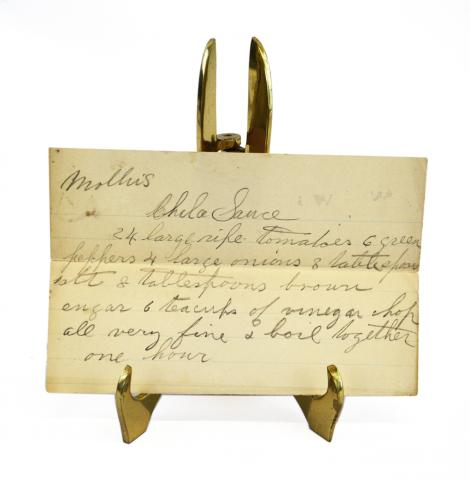 Mollis
Chila Sauce
24 large ripe tomatoes 6 green
peppers 4 large onions 8 tablespoon
salt 8 tablespoons brown
sugar 6 teacups of vinegar chop
all very fine & boil together
one hour